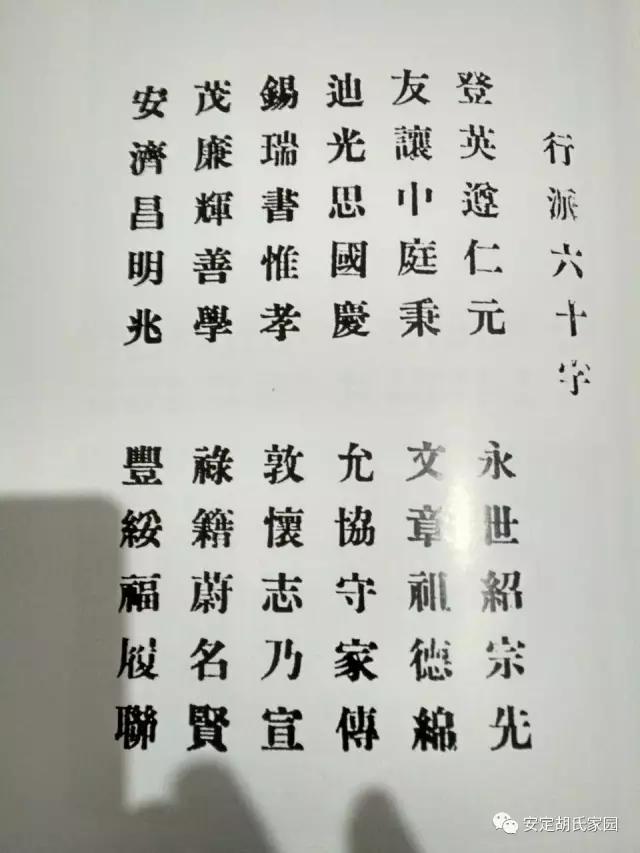 行派六十字
登英遵仁元
永世紹宗先
友讓中庭秉
文章祖德綿
迪光思國慶
允協守家傳
錫瑞書惟孝
敦懷志乃宣
茂廉輝善學
祿籍蔚名賢
安濟昌明兆
豐綏福履聯
安定胡氏家园